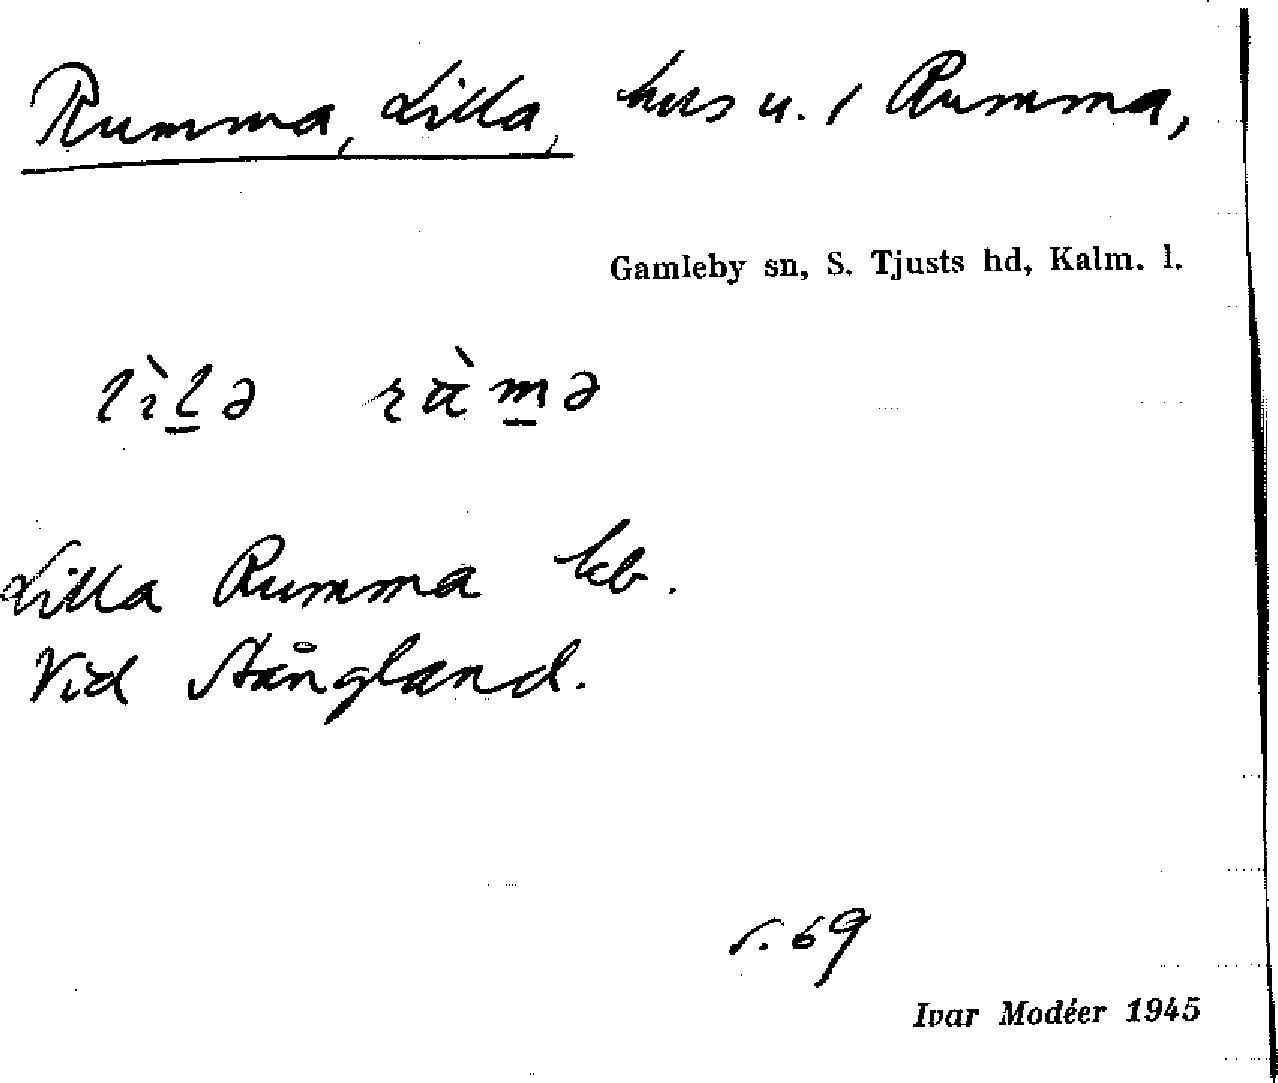 Rumma, Lilla, hus u. 1 Rumma,
Gamleby sn, S. Tjusts hd, Kalm. l.
lìl̲ə rɑ̀m̲ə
Lilla Rumma kb.
Vid Stångland.
s. 69
Ivar Modéer 1945